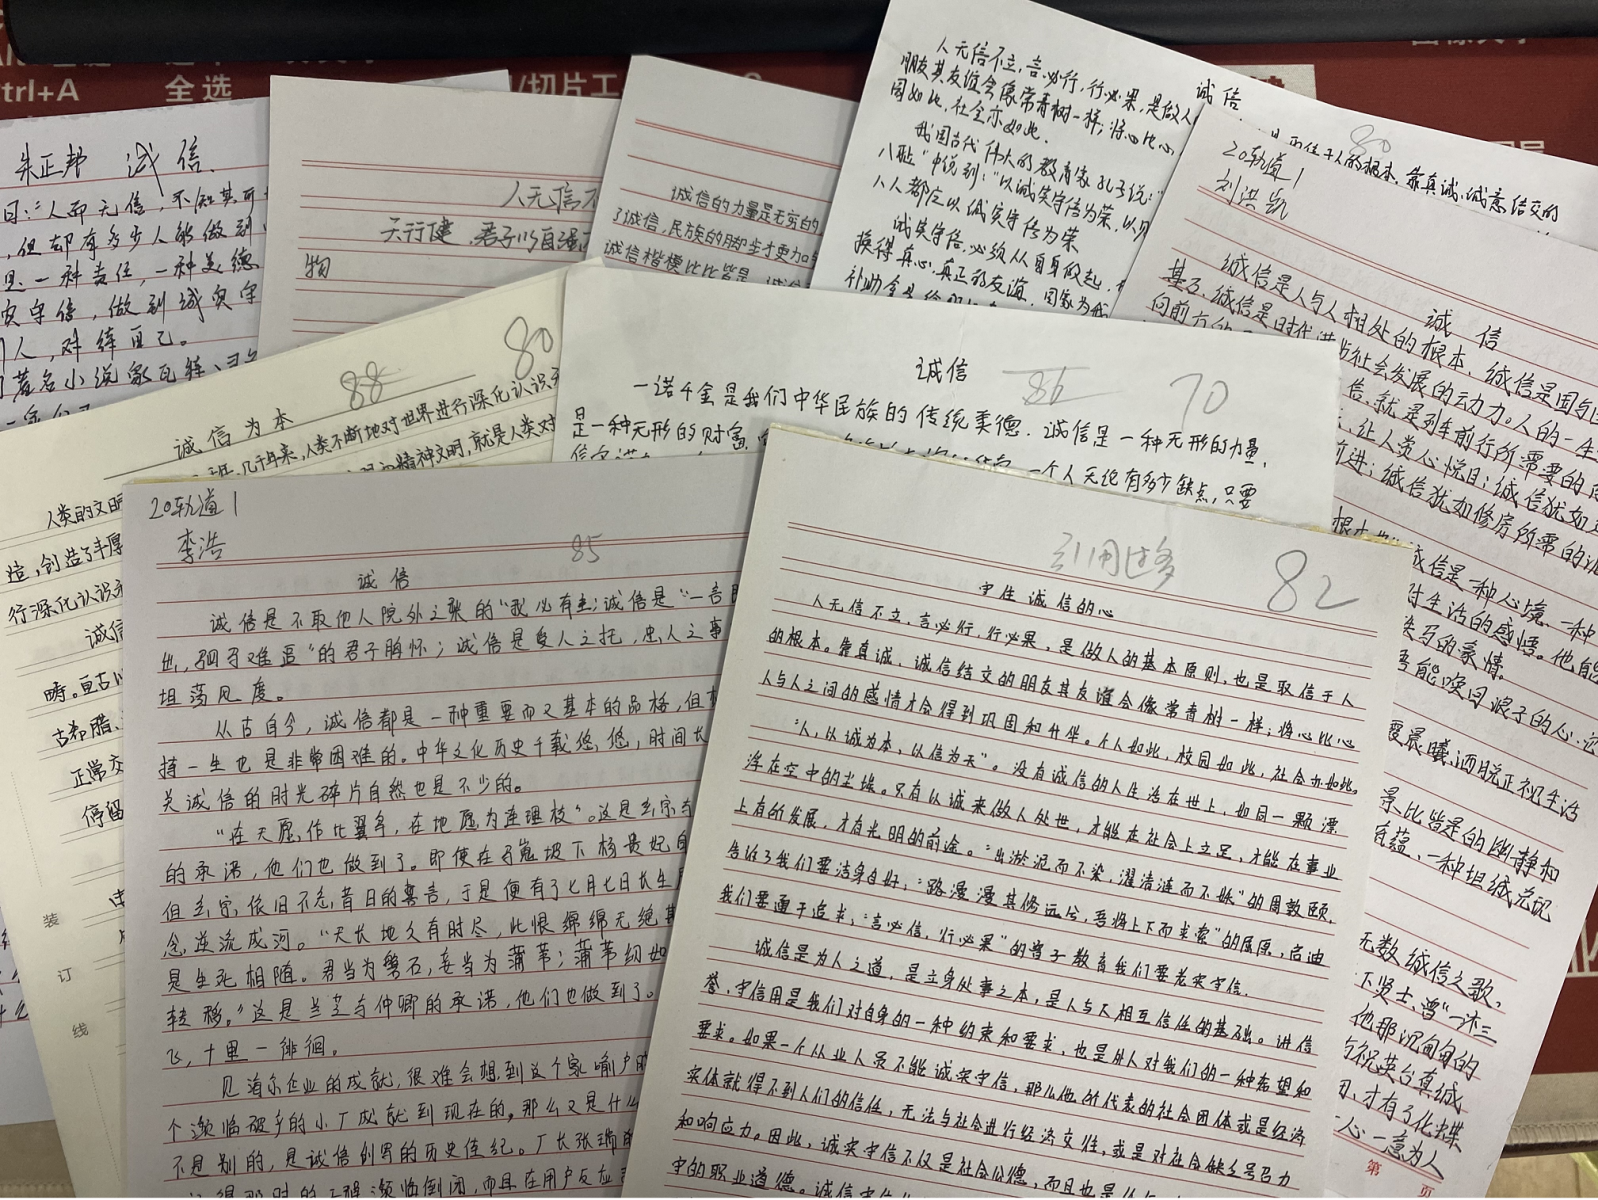 trl+A
全选
/切片工
朱正邦 诚信
曰:“人而无信,不知其可
,但却有多少人能做到
一种责任,一种美德
实守信,做到诚实守
人,对待自己。
著名小说家瓦特
人无信不
天行健,君子以自强不
物
诚信的力量是无穷的
了诚信,民族的脚步才更加
诚信楷模比比皆是
人无信不立,言必行,行必果,是做人
朋友其友谊会像常青树一样;将心比心
园如此,社会亦如此.
我国古代伟大的教育家孔子说:“
八耻”中说到:“以诚实守信为荣,以见
人人都应以诚实守信为荣
诚实守信,必须从自身做起,
换得真心,真正的友谊,国家为我
诚信
80
取信于人的根本,靠真诚,诚意结交的
20轨道1
刘洪凯
诚信
诚信是人与人相处的根本,诚信是国与国
基石,诚信是时代进步社会发展的动力。人的一生
信,就是列车前行所需要的
让人类心悦目;诚信犹如
前进;诚信犹如修房所需的
诚信是一种心境,一种
对生活的感悟。他能
骏马的豪情。
能唤回浪子的心
晨曦,洒脱正视生活
景比皆是的幽静和
底蕴,一种坦诚
无数诚信之歌,
下贤士,曾“一沐三
他那沉甸甸的
与祝英台真诚
才有了化蝶
心一意为人
第 页
88 80
诚信为本
几千年来,人类不断地对世界进行深化认识
精神文明,就是人类对
人类的文明
造,创造了丰厚
行深化认识
诚信
畴。亘古
古希腊、
正常交
停留
装
订
线
诚信
86 70
一诺千金是我们中华民族的传统美德.诚信是一种无形的力量,
是一种无形的财富,
一个人无论有多少缺点,只要
20轨道1
李浩
85
诚信
诚信是不取他人院外之张的“我必有主;诚信是“一言既
出,驷马难追”的君子胸怀;诚信是受人之托,忠人之事
坦荡见度。
从古自今,诚信都是一种重要而又基本的品格,但
持一生也是非常困难的。中华文化历史千载悠悠,时间长
关诚信的时光碎片自然也是不少的。
“在天愿作比翼鸟,在地愿为连理枝”。这是玄宗与
的承诺,他们也做到了。即使在马嵬坡下杨贵妃自
但玄宗依旧不忘昔日的誓言,于是便有了七月七日长生
念逆流成河。“天长地久有时尽,此恨绵绵无绝期
是生死相随。君当为磐石,妾当为蒲苇;蒲苇纫如
转移。”这是兰芝与仲卿的承诺,他们也做到了。
飞,十里一徘徊。
见海尔企业的成就,很难会想到这个家喻户
个濒临破乡的小厂成就到现在的。那么又是什么
不是别的,是诚信创写的历史佳纪。厂长张瑞
引用过多
82
守住诚信的心
人无信不立,言必行,行必果,是做人的基本原则,也是取信于人
的根本。靠真诚、诚信结交的朋友其友谊会像常青树一样;将心比心
人与人之间的感情才会得到巩固和升华。个人如此,校园如此,社会亦如此。
“人,以诚为本,以信为天”。没有诚信的人生活在世上,如同一颗漂
浮在空中的尘埃。只有以诚来做人处世,才能在社会上立足,才能在事业
上有所发展,才有光明的前途。“出淤泥而不染,濯清涟而不妖”的周敦颐,
告诉了我们要洁身自好,“路漫漫其修远兮,吾将上下而求索”的屈原,启迪
我们要勇于追求;“言必信,行必果”的曾子教育我们要老实守信.
诚信是为人之道,是立身处事之本,是人与人相互信任的基础。讲信
誉,守信用是我们对自身的一种约束和要求,也是外人对我们的一种希望和
要求。如果一个从业人员不能诚实守信,那么他所代表的社会团体或是经济
实体就得不到人们的信任,无法与社会进行经济交往,或是对社会缺乏号召力
和响应力。因此,诚实守信不仅是社会公德,而且也是
守的职业道德。